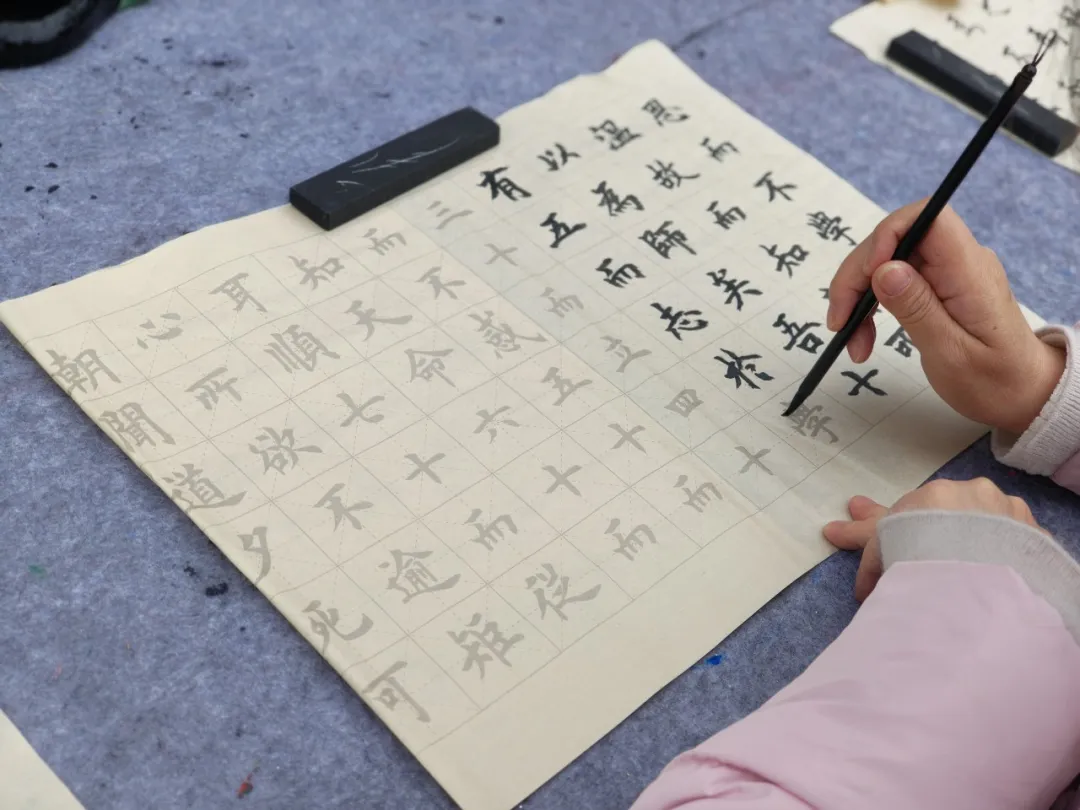 思而不學
温故而知可
以為師矣吾十
有五而志於學
三十而立四十
而不惑五十而
知天命六十而
耳順七十而從
心所欲不逾矩
朝聞道夕死可